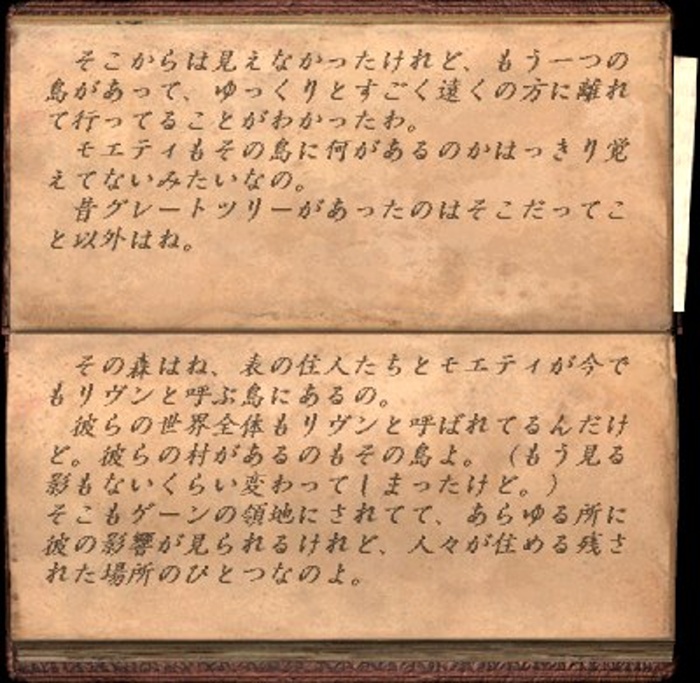 そこからは見えなかったけれど、もう一つの
島があって、ゆっくりとすごく遠くの方に離れ
て行ってることがわかったわ。
モエティもその島に何があるのかはっきり覚
えてないみたいなの。
昔グレートツリーがあったのはそこだってこ
と以外はね。
その森はね、表の住人たちとモエティが今で
もリヴンと呼ぶ島にあるの。
彼らの世界全体もリヴンと呼ばれてるんだけ
ど。彼らの村があるのもその島よ。（もう見る
影もないくらい変わってしまったけど。）
そこもゲーンの領地にされてて、あらゆる所に
彼の影響が見られるけれど、人々が住める残さ
れた場所のひとつなのよ。